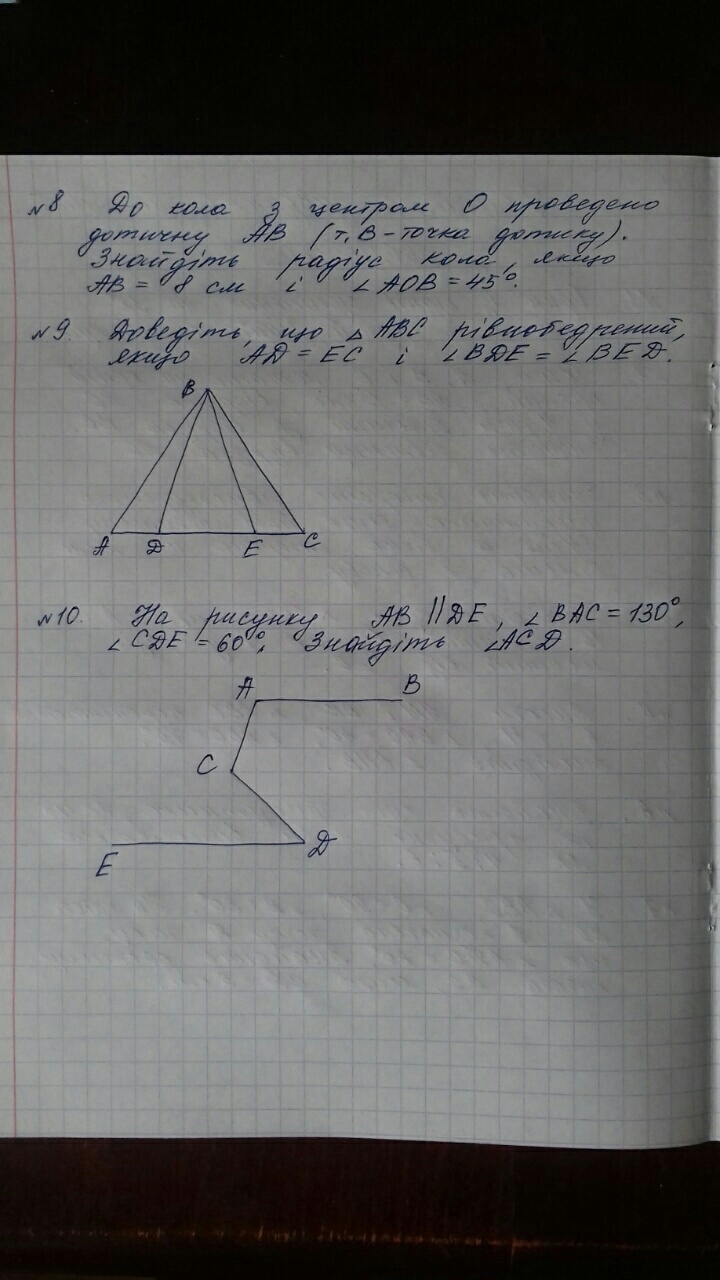 №8 До кола з центром О проведено
дотичну АВ (т. В – точка дотику).
Знайдіть радіус кола, якщо
АВ = 8 см і ∠АОВ = 45°.
№9. Доведіть, що △АВС рівнобедрений,
якщо AD = EC і ∠BDE = ∠BED.
B
A D E C
№10. На рисунку АВ || DE, ∠BAC = 130°,
∠CDE = 60°. Знайдіть ∠ACD.
A B
C
D
E